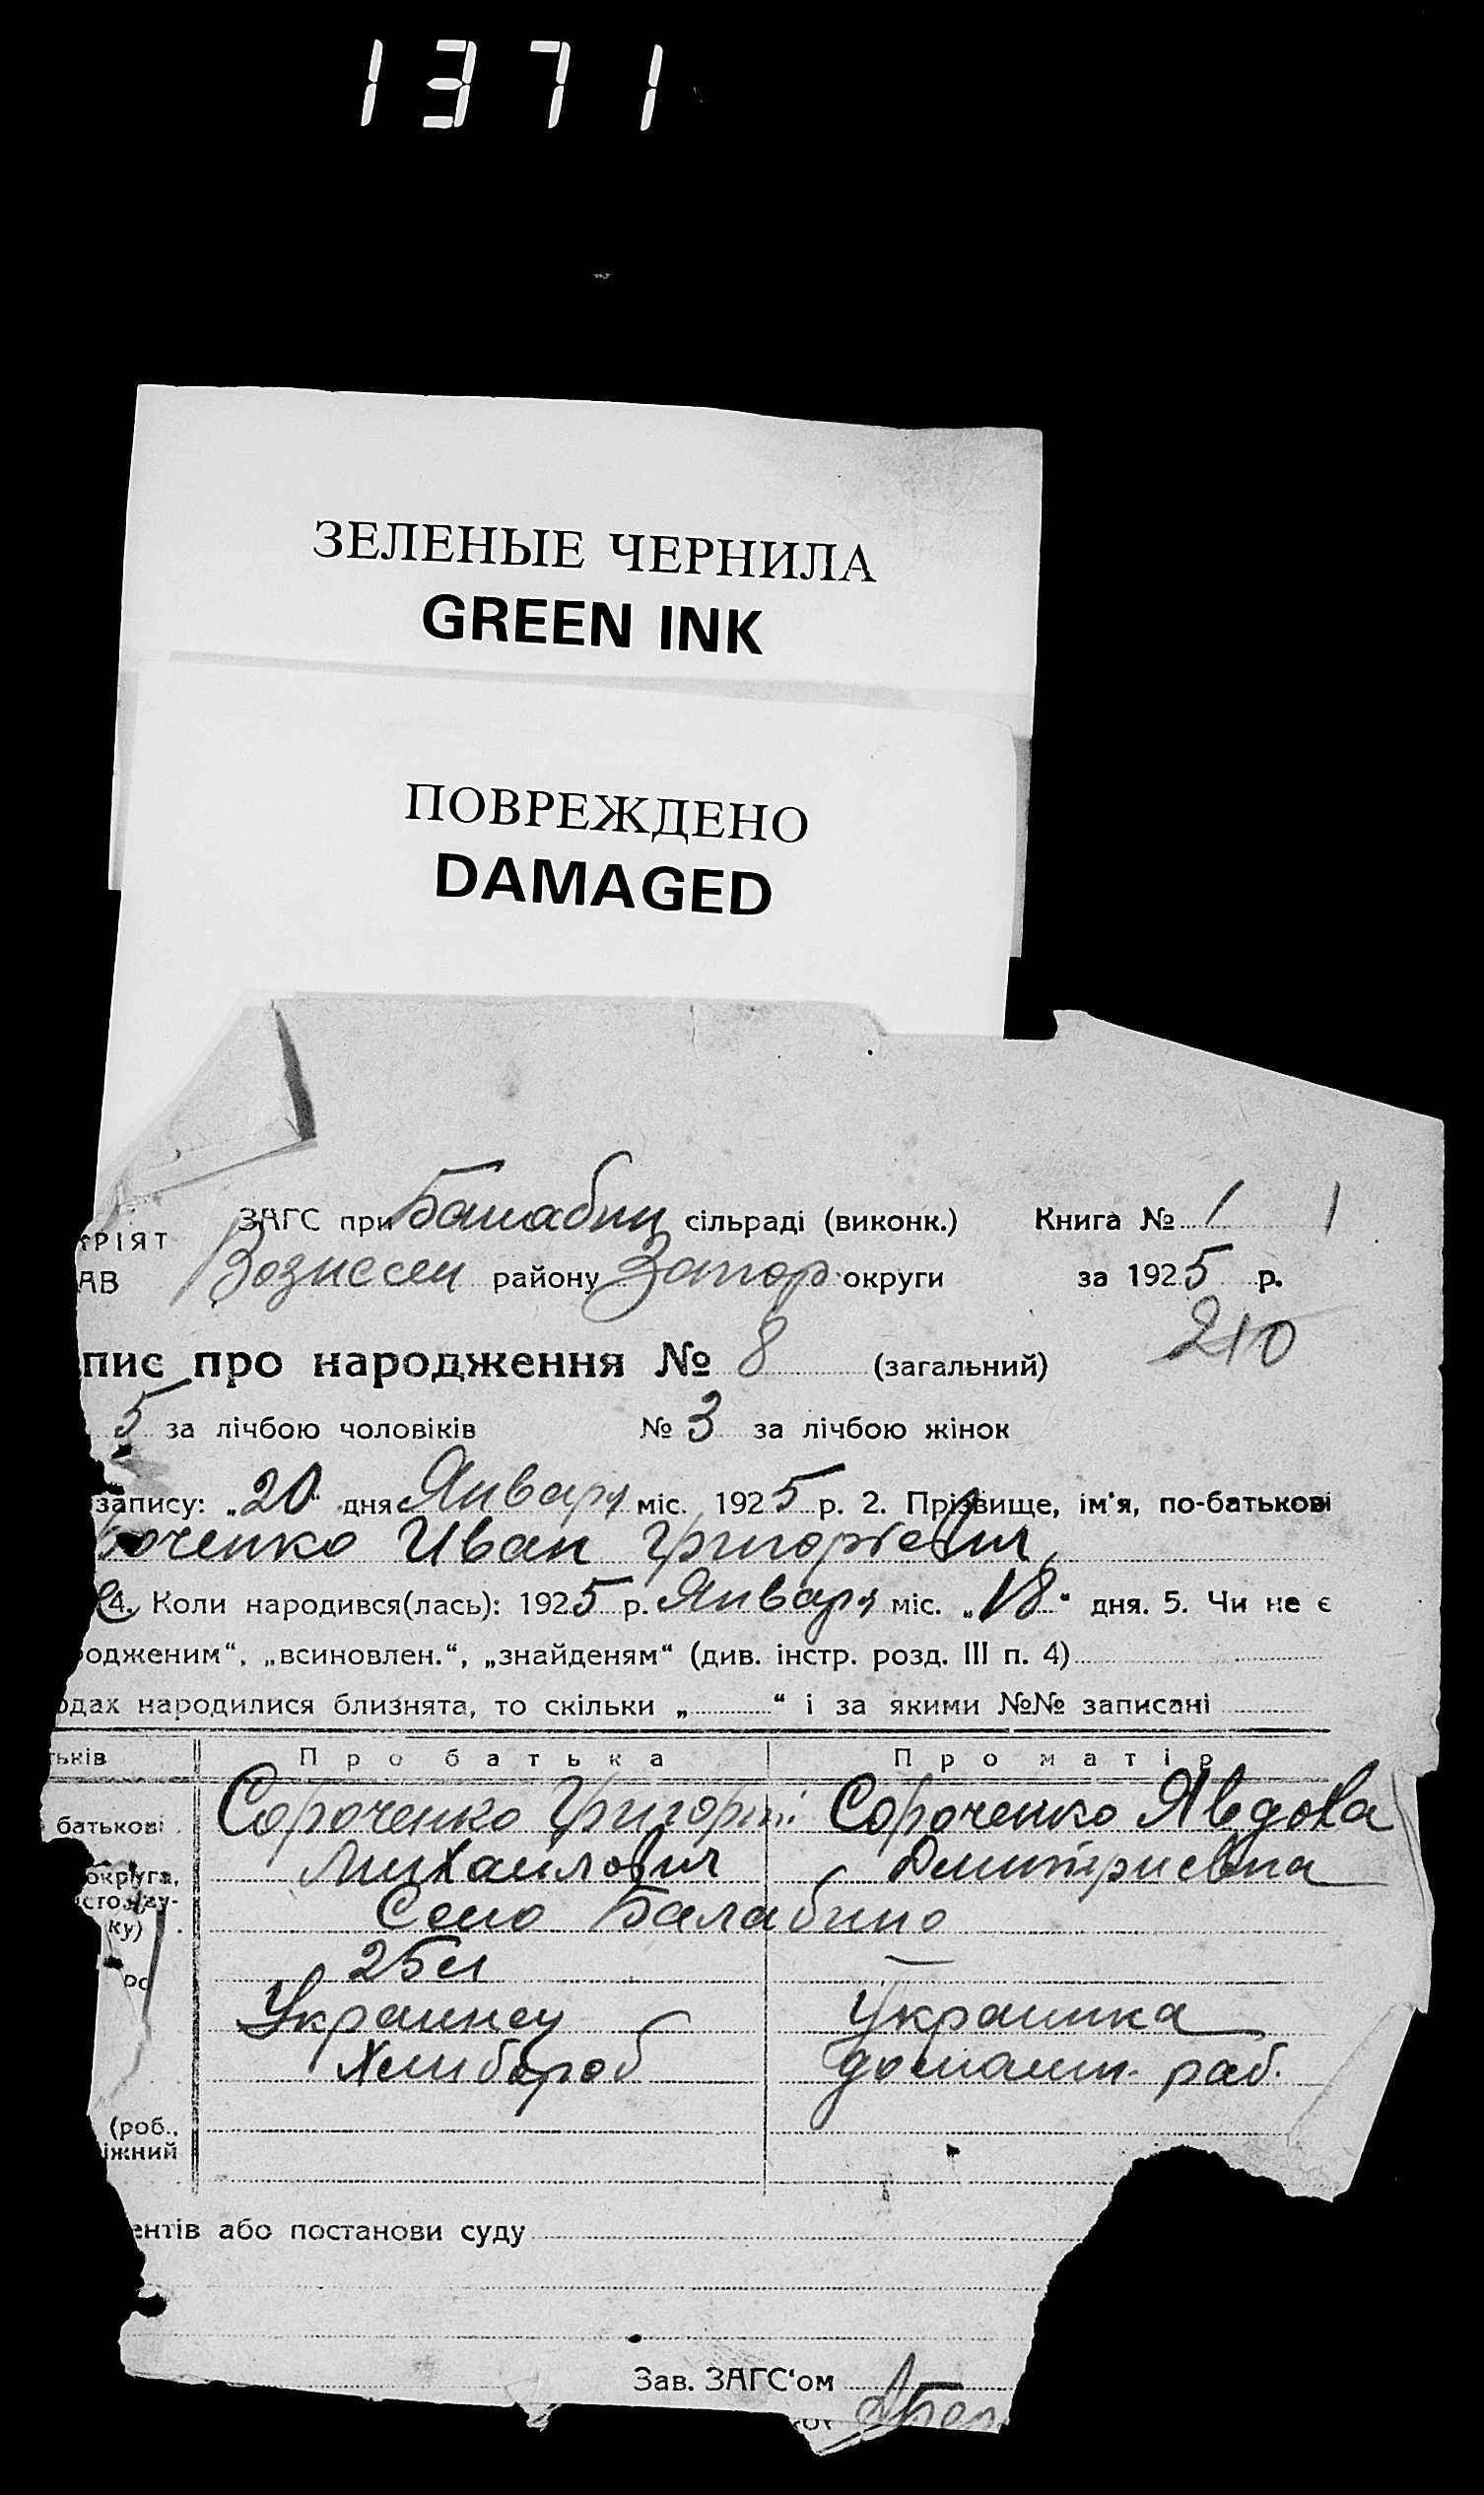 1371
ЗЕЛЕНЫЕ ЧЕРНИЛА
GREEN INK
ПОВРЕЖДЕНО
DAMAGED
ЗАГС при Балабин сільраді (виконк.) Книга № 1 1
РІЯТ
АВ Вознесен району Запор округи за 1925 р.
210
пис про народження № 8 (загальний)
5 за лічбою чоловіків № 3 за лічбою жінок
запису: „20“ дня Января міс. 1925 р. 2. Прізвище, ім'я, по-батькові
роченко Иван Григорієвич
4. Коли народився(лась): 1925 р. Января міс. „18“ дня. 5. Чи не є
одженим“, „всиновлен.“, „знайденям“ (див. інстр. розд. III п. 4)
одах народилися близнята, то скільки „ “ і за якими №№ записані
тьків Про батька Про матір
батькові Сороченко Григорий Сороченко Явдоха
Михаилович Дмитриевна
округа,
Село Балабино
ку)
25 л —
Украинец Украинка
Хлибороб домашн. раб.
(роб.,
іжний
ентів або постанови суду
Зав. ЗАГС'ом